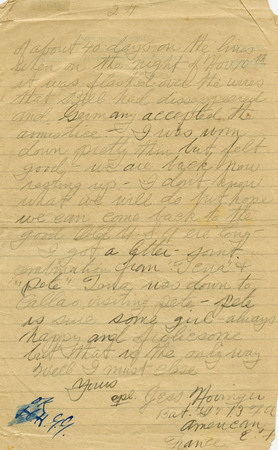 of about 40 days on the lines
when on the night of Nov 10th
it was flashed over the wires
that Hell had disappeared
and Germany accepted the
armistice - I was worn
down pretty thin but felt
good - we are back now
resting up - I don't know
what we will do but hope
we can come back to the
good old U.S. ere long -
I got a letter - joint
combination from
"Pete" was down to
visiting Pete - Pete
is sure some girl - always
happy and frolicsome
but that is the only way
Well I must close
Yours
Cpl. Jess
Bat.
American E.F.
France